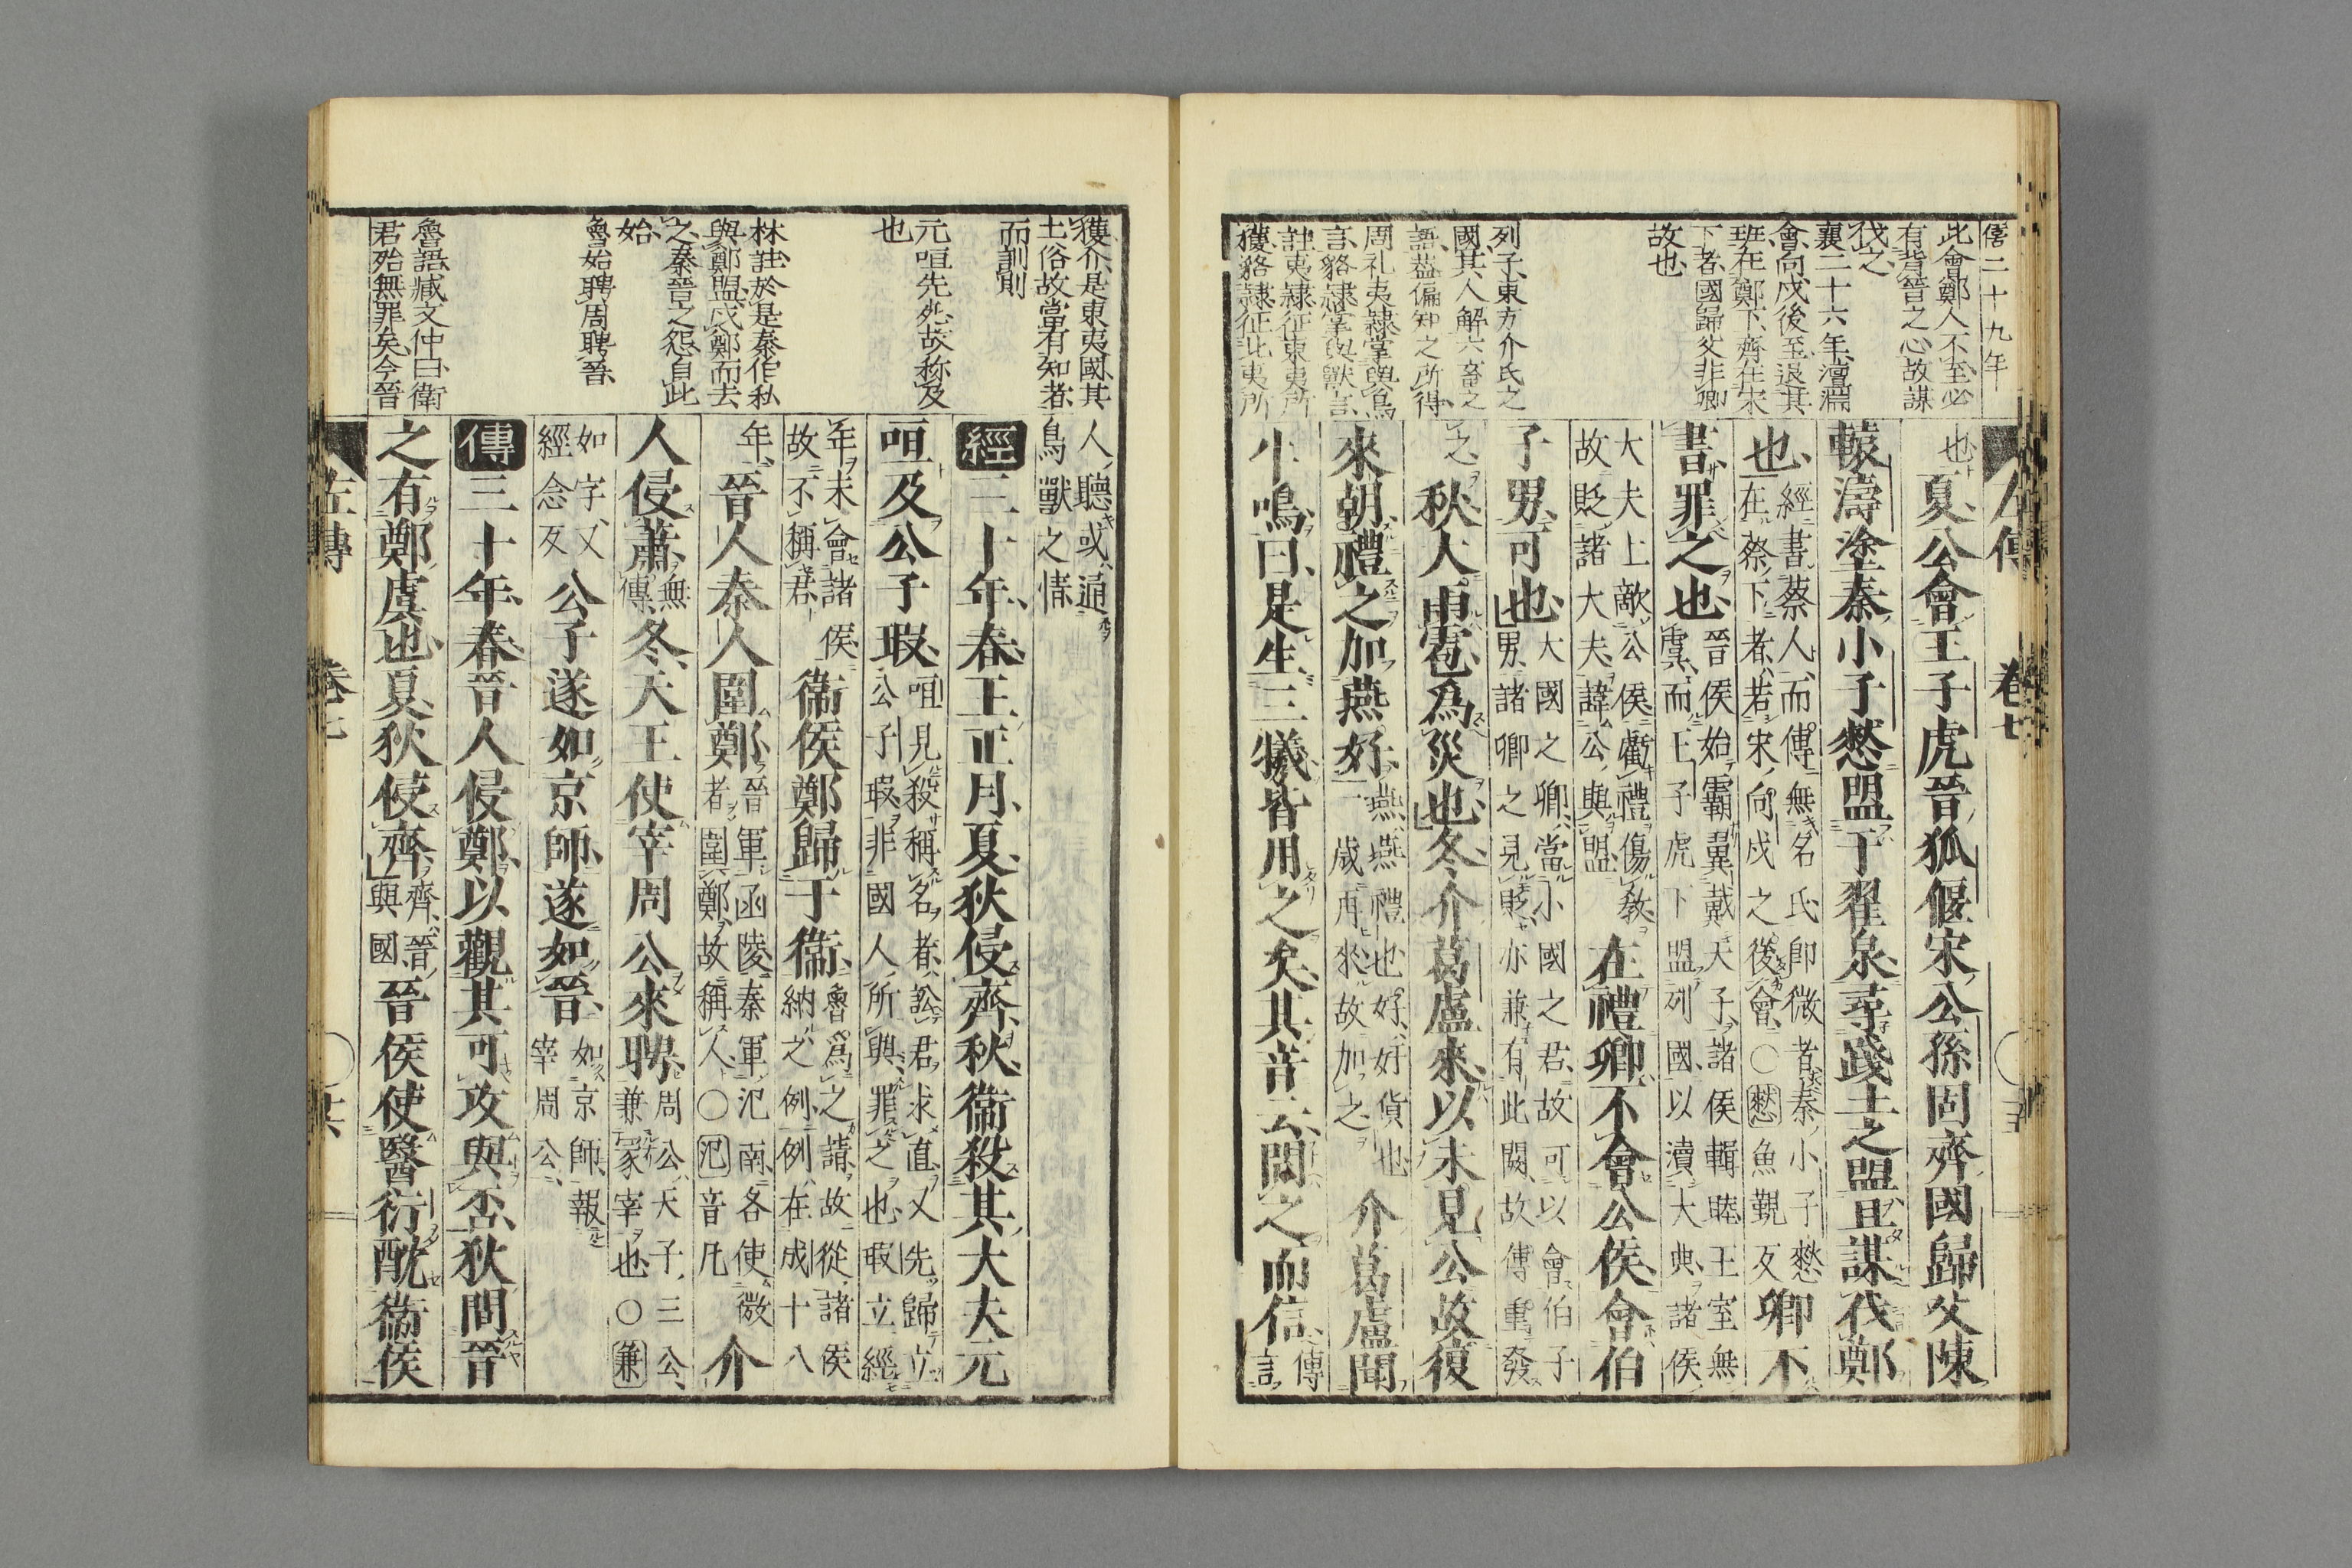 僖二十九年
此會鄭人不至必
有背晉之心故謀
伐之
襄二十六年澶淵
會向戍後至退其
班在鄭下齊在宋
下者國歸父非卿
故也
列子東方介氏之
國其人解六畜之
語葢偏知之所得
周礼夷隷掌與鳥
言貉隷掌與獸言
註夷隷征東夷所
獲貉隷征北夷所
左傳 卷七
也夏公會王子虎晉狐偃宋公孫固齊國歸父陳
轅濤塗秦小子憖盟于翟泉尋踐土之盟且謀伐鄭
也經書蔡人而傳無名氏卽微者秦小子憖在蔡下者若宋向戍之後會○憖魚覲反卿不
書罪之也晉侯始霸翼戴天子諸侯輯睦王室無虞而王子虎下盟列國以瀆大典諸侯
大夫上敵公侯虧禮傷敎故貶諸大夫諱公與盟在禮卿不會公侯會伯
子男可也大國之卿當小國之君故可以會伯子男諸卿之見貶亦兼有此闕故傳重發
之秋大雨雹爲災也冬介葛盧來以未見公故復
來朝禮之加燕好燕燕禮也好好貨也一歲再來故加之介葛盧聞
牛鳴曰是生三犧皆用之矣其音云問之而信傳言
獲介是東夷國其
土俗故當有知者
而訓則
元咺先死故称及
也
林註於是秦伯私
與鄭盟戍鄭而去
之秦晉之怨自此
始
魯始聘周聘晉
魯語臧文仲曰衛
君殆無罪矣今晉
人聽或通鳥獸之情
經三十年春王正月夏狄侵齊秋衞殺其大夫元
咺及公子瑕咺見殺稱名者訟君求直又先歸立公子瑕非國人所與罪之也瑕立經
年未會諸侯故不稱君衞侯鄭歸于衞魯爲之請故從諸侯納之例例在成十八
年晉人秦人圍鄭晉軍函陵秦軍氾南各使微者圍鄭故稱人○氾音凡介
人侵蕭無傳冬天王使宰周公來聘周公天子三公兼冢宰也○兼
如字又經念反公子遂如京師遂如晉如京師報宰周公
傳三十年春晉人侵鄭以觀其可攻與否狄間晉
之有鄭虞也夏狄侵齊齊晉與國晉侯使醫衍酖衞侯
左傳 卷七